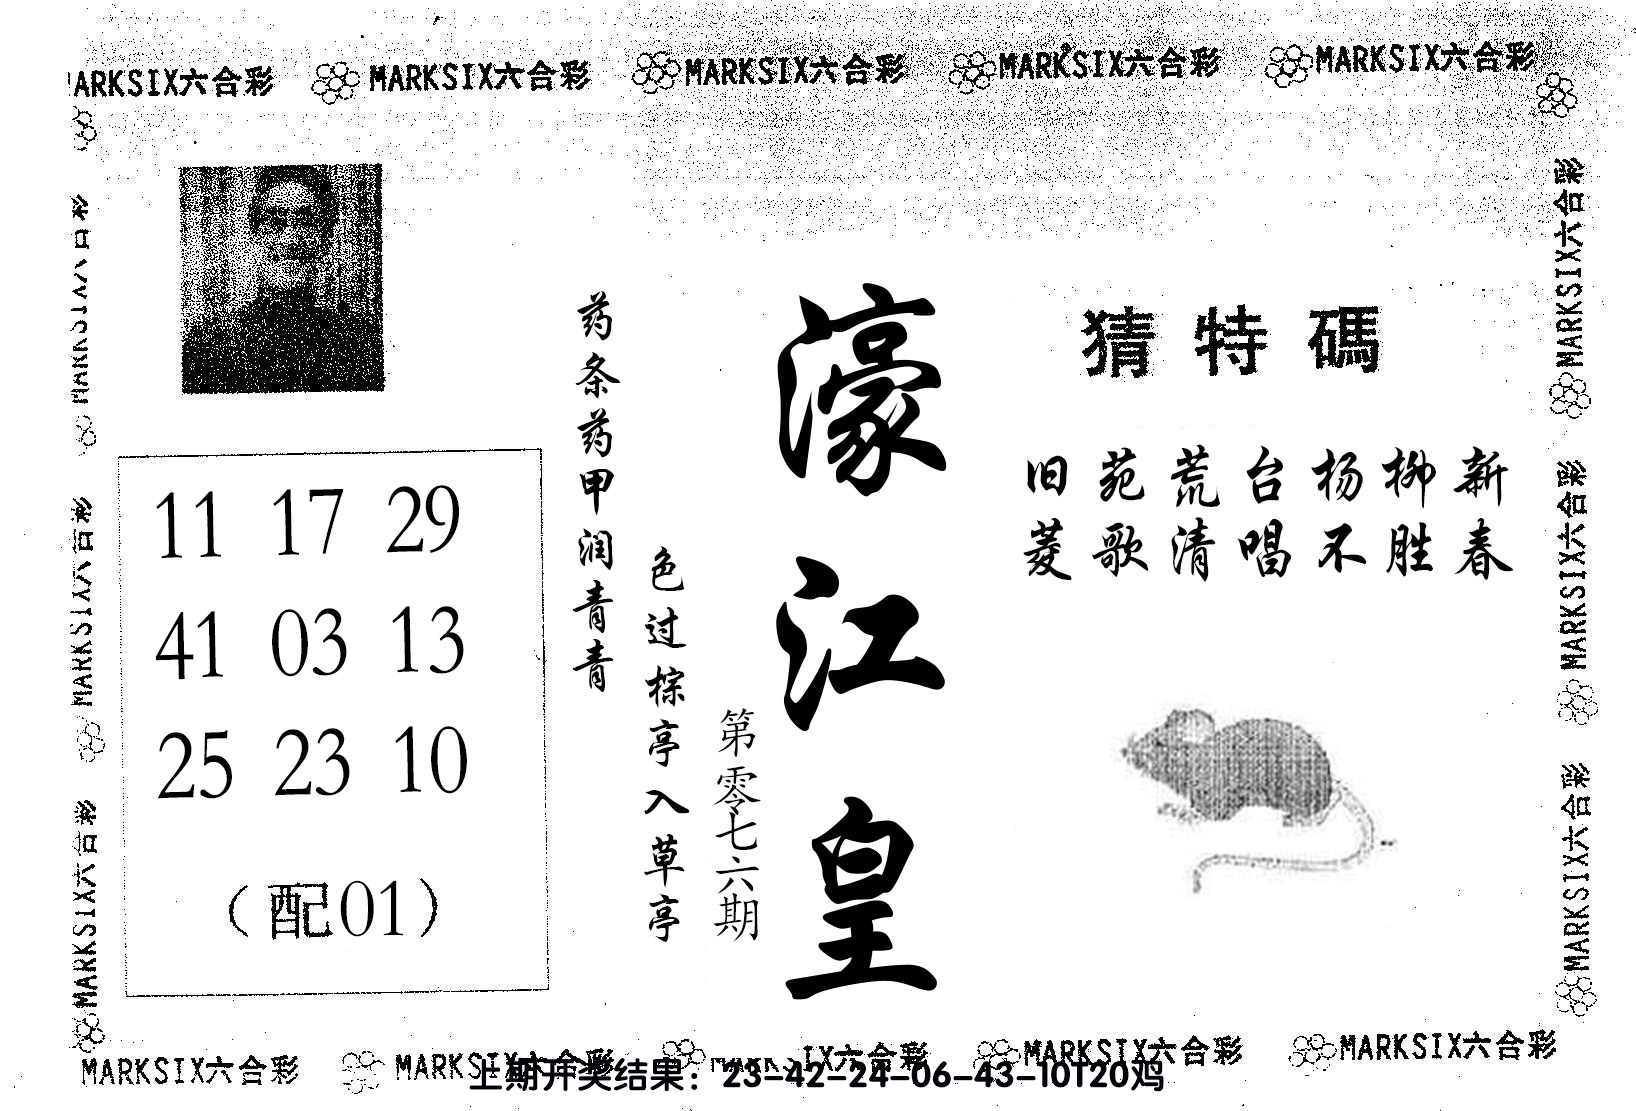 MARKSIX六合彩 MARKSIX六合彩 MARKSIX六合彩 MARKSIX六合彩
MARKSIX六合彩
猜特碼
旧苑荒台杨柳新
菱歌清唱不胜春
濠江皇
第零七六期
药条药甲润青青
色过棕亭入草亭
11 17 29
41 03 13
25 23 10
（配01）
MARKSIX六合彩
MARKSIX六合彩
MARKSIX六合彩
MARKSIX六合彩
MARKSIX六合彩
MARKSIX六合彩 MARKSIX六合彩 MARKSIX六合彩 MARKSIX六合彩
上期开奖结果：23-42-24-06-43-10T20鸡